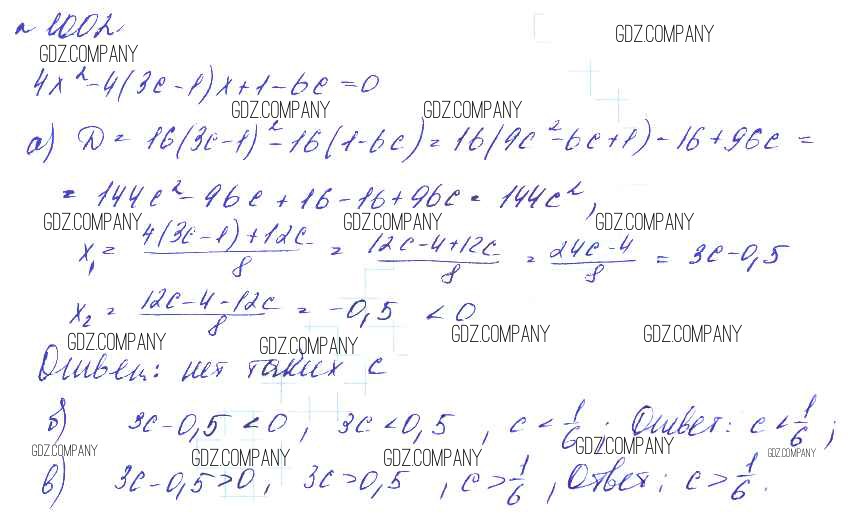 n 1002.
GDZ.COMPANY GDZ.COMPANY
4x² - 4(3c-1)x + 1 - 6c = 0
GDZ.COMPANY GDZ.COMPANY
а) D = 16(3c-1)² - 16(1-6c) = 16(9c² - 6c + 1) - 16 + 96c =
= 144c² - 96c + 16 - 16 + 96c = 144c²,
GDZ.COMPANY GDZ.COMPANY GDZ.COMPANY
x₁ = (4(3c-1) + 12c)/8 = (12c - 4 + 12c)/8 = (24c - 4)/8 = 3c - 0,5
x₂ = (12c - 4 - 12c)/8 = -0,5 < 0
GDZ.COMPANY GDZ.COMPANY GDZ.COMPANY GDZ.COMPANY
Ответ: нет таких c
б) 3c - 0,5 < 0, 3c < 0,5, c < 1/6. Ответ: c < 1/6;
GDZ.COMPANY GDZ.COMPANY GDZ.COMPANY GDZ.COMPANY GDZ.COMPANY
в) 3c - 0,5 > 0, 3c > 0,5, c > 1/6, Ответ: c > 1/6.